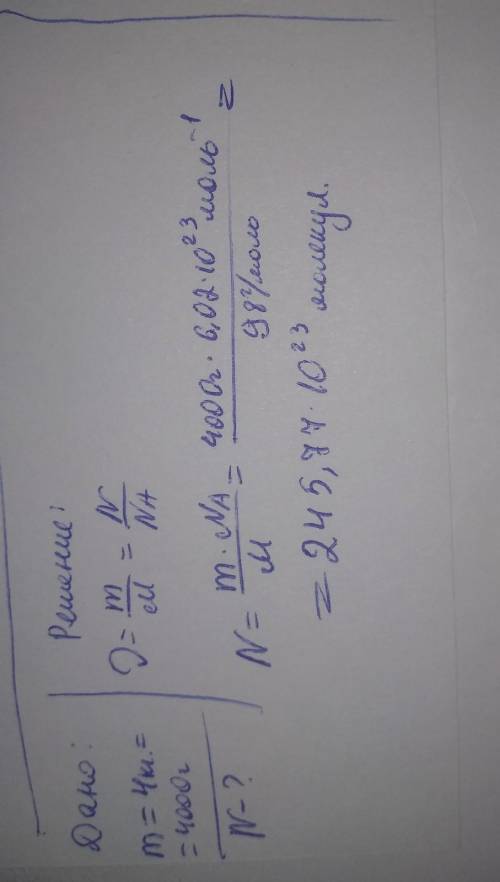 Дано:
m = 4кг. =
= 4000г
N - ?
Решение:
𝜈 = m/M = N/NA
N = m · NA / M = 4000г · 6,02 · 10²³ моль⁻¹ / 98 г/моль =
= 245,77 · 10²³ молекул.